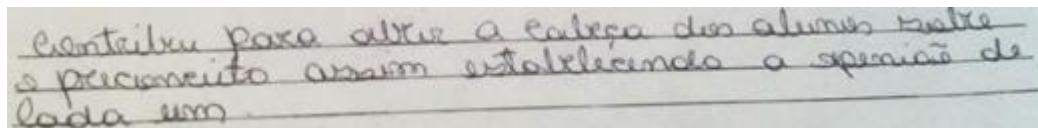 contribu para abrir a cabeça dos alunos sobre
o precomceito assim estabelecendo a openião de
cada um